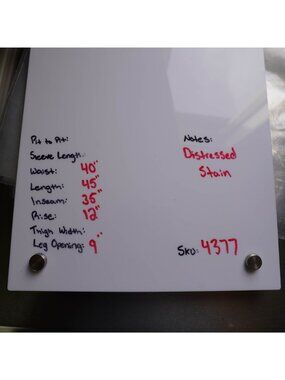 Pit to Pit:
Sleeve Length:
Waist: 40"
Length: 45"
Inseam: 35"
Rise: 12"
Thigh Width:
Leg Opening: 9"
Notes:
Distressed
Stain
SKU: 4377